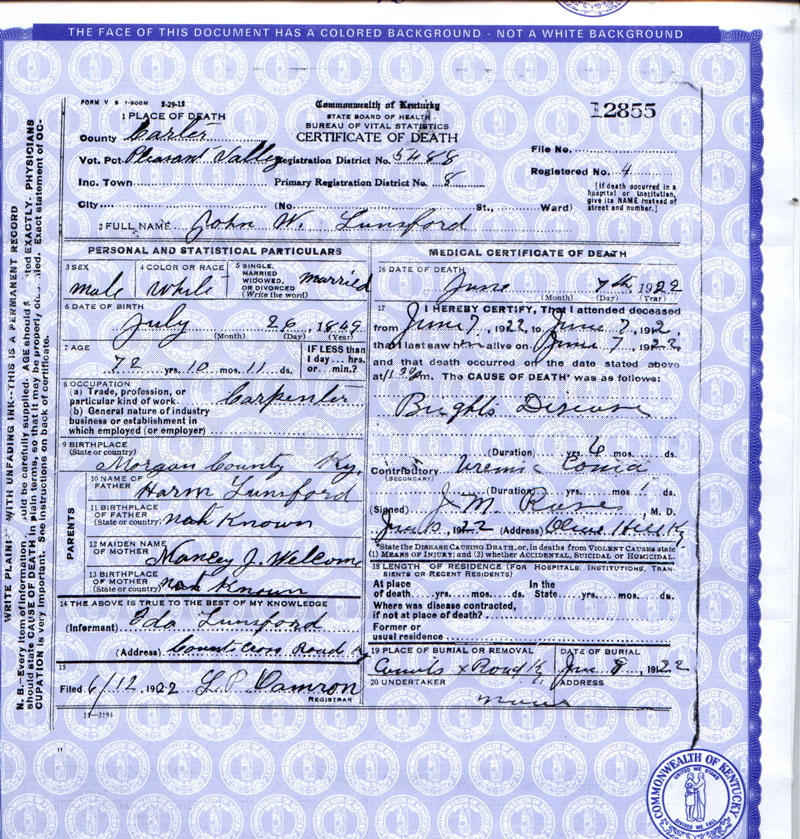 THE FACE OF THIS DOCUMENT HAS A COLORED BACKGROUND - NOT A WHITE BACKGROUND
FORM V S 1-500M 2-29-12
Commonwealth of Kentucky
STATE BOARD OF HEALTH
BUREAU OF VITAL STATISTICS
CERTIFICATE OF DEATH
12855
1 PLACE OF DEATH
County Carter
Vot. Pct. Pleasant Valley Registration District No. 5488
Inc. Town Primary Registration District No. 8
City (No. St., Ward)
File No.
Registered No. 4
[If death occurred in a hospital or institution, give its NAME instead of street and number.]
2 FULL NAME John W. Lunsford
PERSONAL AND STATISTICAL PARTICULARS
3 SEX male
4 COLOR OR RACE White
5 SINGLE, MARRIED WIDOWED, OR DIVORCED (Write the word) married
6 DATE OF BIRTH
July 26, 1849
(Month) (Day) (Year)
7 AGE
72 yrs. 10 mos. 11 ds.
IF LESS than 1 day... hrs. or... min.?
8 OCCUPATION
(a) Trade, profession, or particular kind of work. Carpenter
(b) General nature of industry business or establishment in which employed (or employer)
9 BIRTHPLACE
(State or country)
Morgan County Ky.
PARENTS
10 NAME OF FATHER Harm Lunsford
11 BIRTHPLACE OF FATHER (State or country) not Known
12 MAIDEN NAME OF MOTHER Nancy J. Welcome
13 BIRTHPLACE OF MOTHER (State or country) not Known
14 THE ABOVE IS TRUE TO THE BEST OF MY KNOWLEDGE
(Informant) Ida Lunsford
(Address) Counts Cross Road Ky
15
Filed 6/12, 1922 L. P. Damron
REGISTRAR
11-3184
MEDICAL CERTIFICATE OF DEATH
16 DATE OF DEATH
June 7th, 1922
(Month) (Day) (Year)
17 I HEREBY CERTIFY, That I attended deceased
from June 7, 1922, to June 7, 191 2,
that I last saw him alive on June 7, 1922
and that death occurred on the date stated above
at m. The CAUSE OF DEATH* was as follows:
Brights Disease
(Duration) yrs. 6 mos. ds.
Contributory Uremic Coma
(SECONDARY)
(Duration) yrs. mos. ds.
(Signed) J. M. M. D.
1922 (Address) Olive Hill Ky
*State the DISEASE CAUSING DEATH, or, in deaths from VIOLENT CAUSES state
(1) MEANS OF INJURY; and (2) whether ACCIDENTAL, SUICIDAL OR HOMICIDAL.
18 LENGTH OF RESIDENCE (FOR HOSPITALS, INSTITUTIONS, TRANSIENTS OR RECENT RESIDENTS)
At place of death yrs. mos. ds. In the State yrs. mos. ds.
Where was disease contracted,
if not at place of death?
Former or
usual residence
19 PLACE OF BURIAL OR REMOVAL
Counts X Road Ky
DATE OF BURIAL
June 8, 1922
20 UNDERTAKER
ADDRESS
N. B.—Every item of information should be carefully supplied. AGE should be stated EXACTLY. PHYSICIANS
should state CAUSE OF DEATH in plain terms, so that it may be properly classified. Exact statement of OCCUPATION is very important. See instructions on back of certificate.
WRITE PLAINLY WITH UNFADING INK---THIS IS A PERMANENT RECORD
COMMONWEALTH OF KENTUCKY
UNITED WE STAND
DIVIDED WE FALL